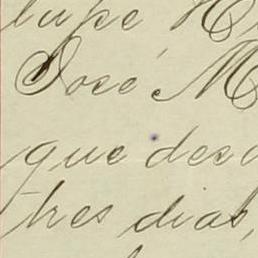 lupe
José M
que desd
tres dias,